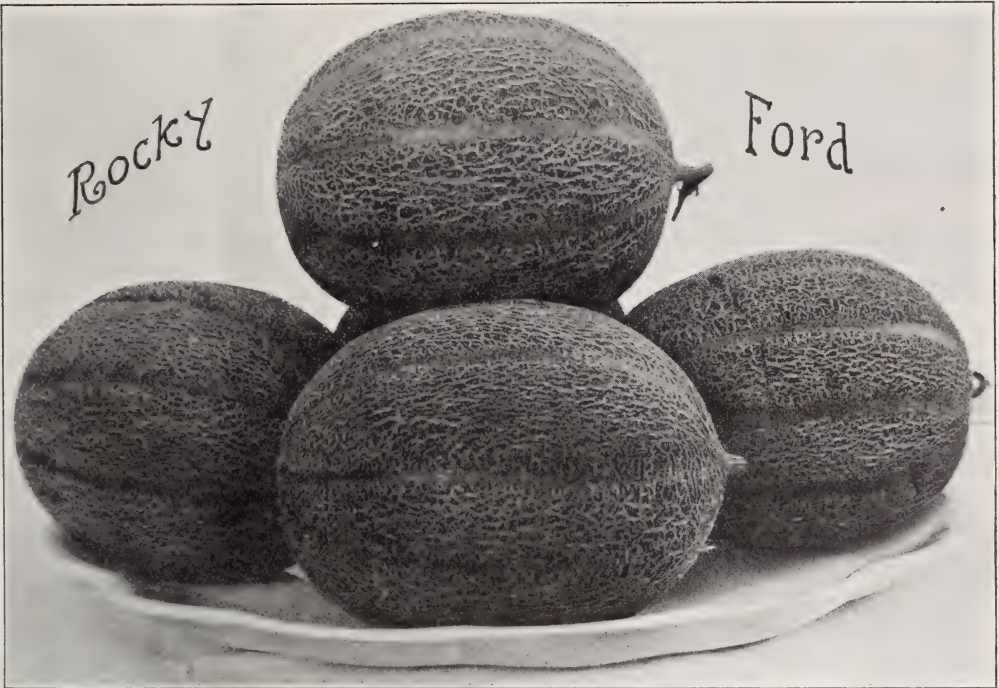 Rocky
Ford